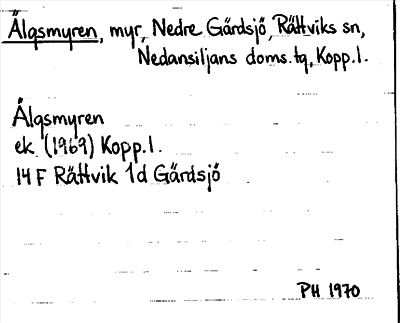 Älgsmyren, myr, Nedre Gärdsjö, Rättviks sn,
Nedansiljans doms.tg, Kopp.l.
Älgsmyren
ek. (1969) Kopp.l.
14 F Rättvik 1d Gärdsjö
PH 1970